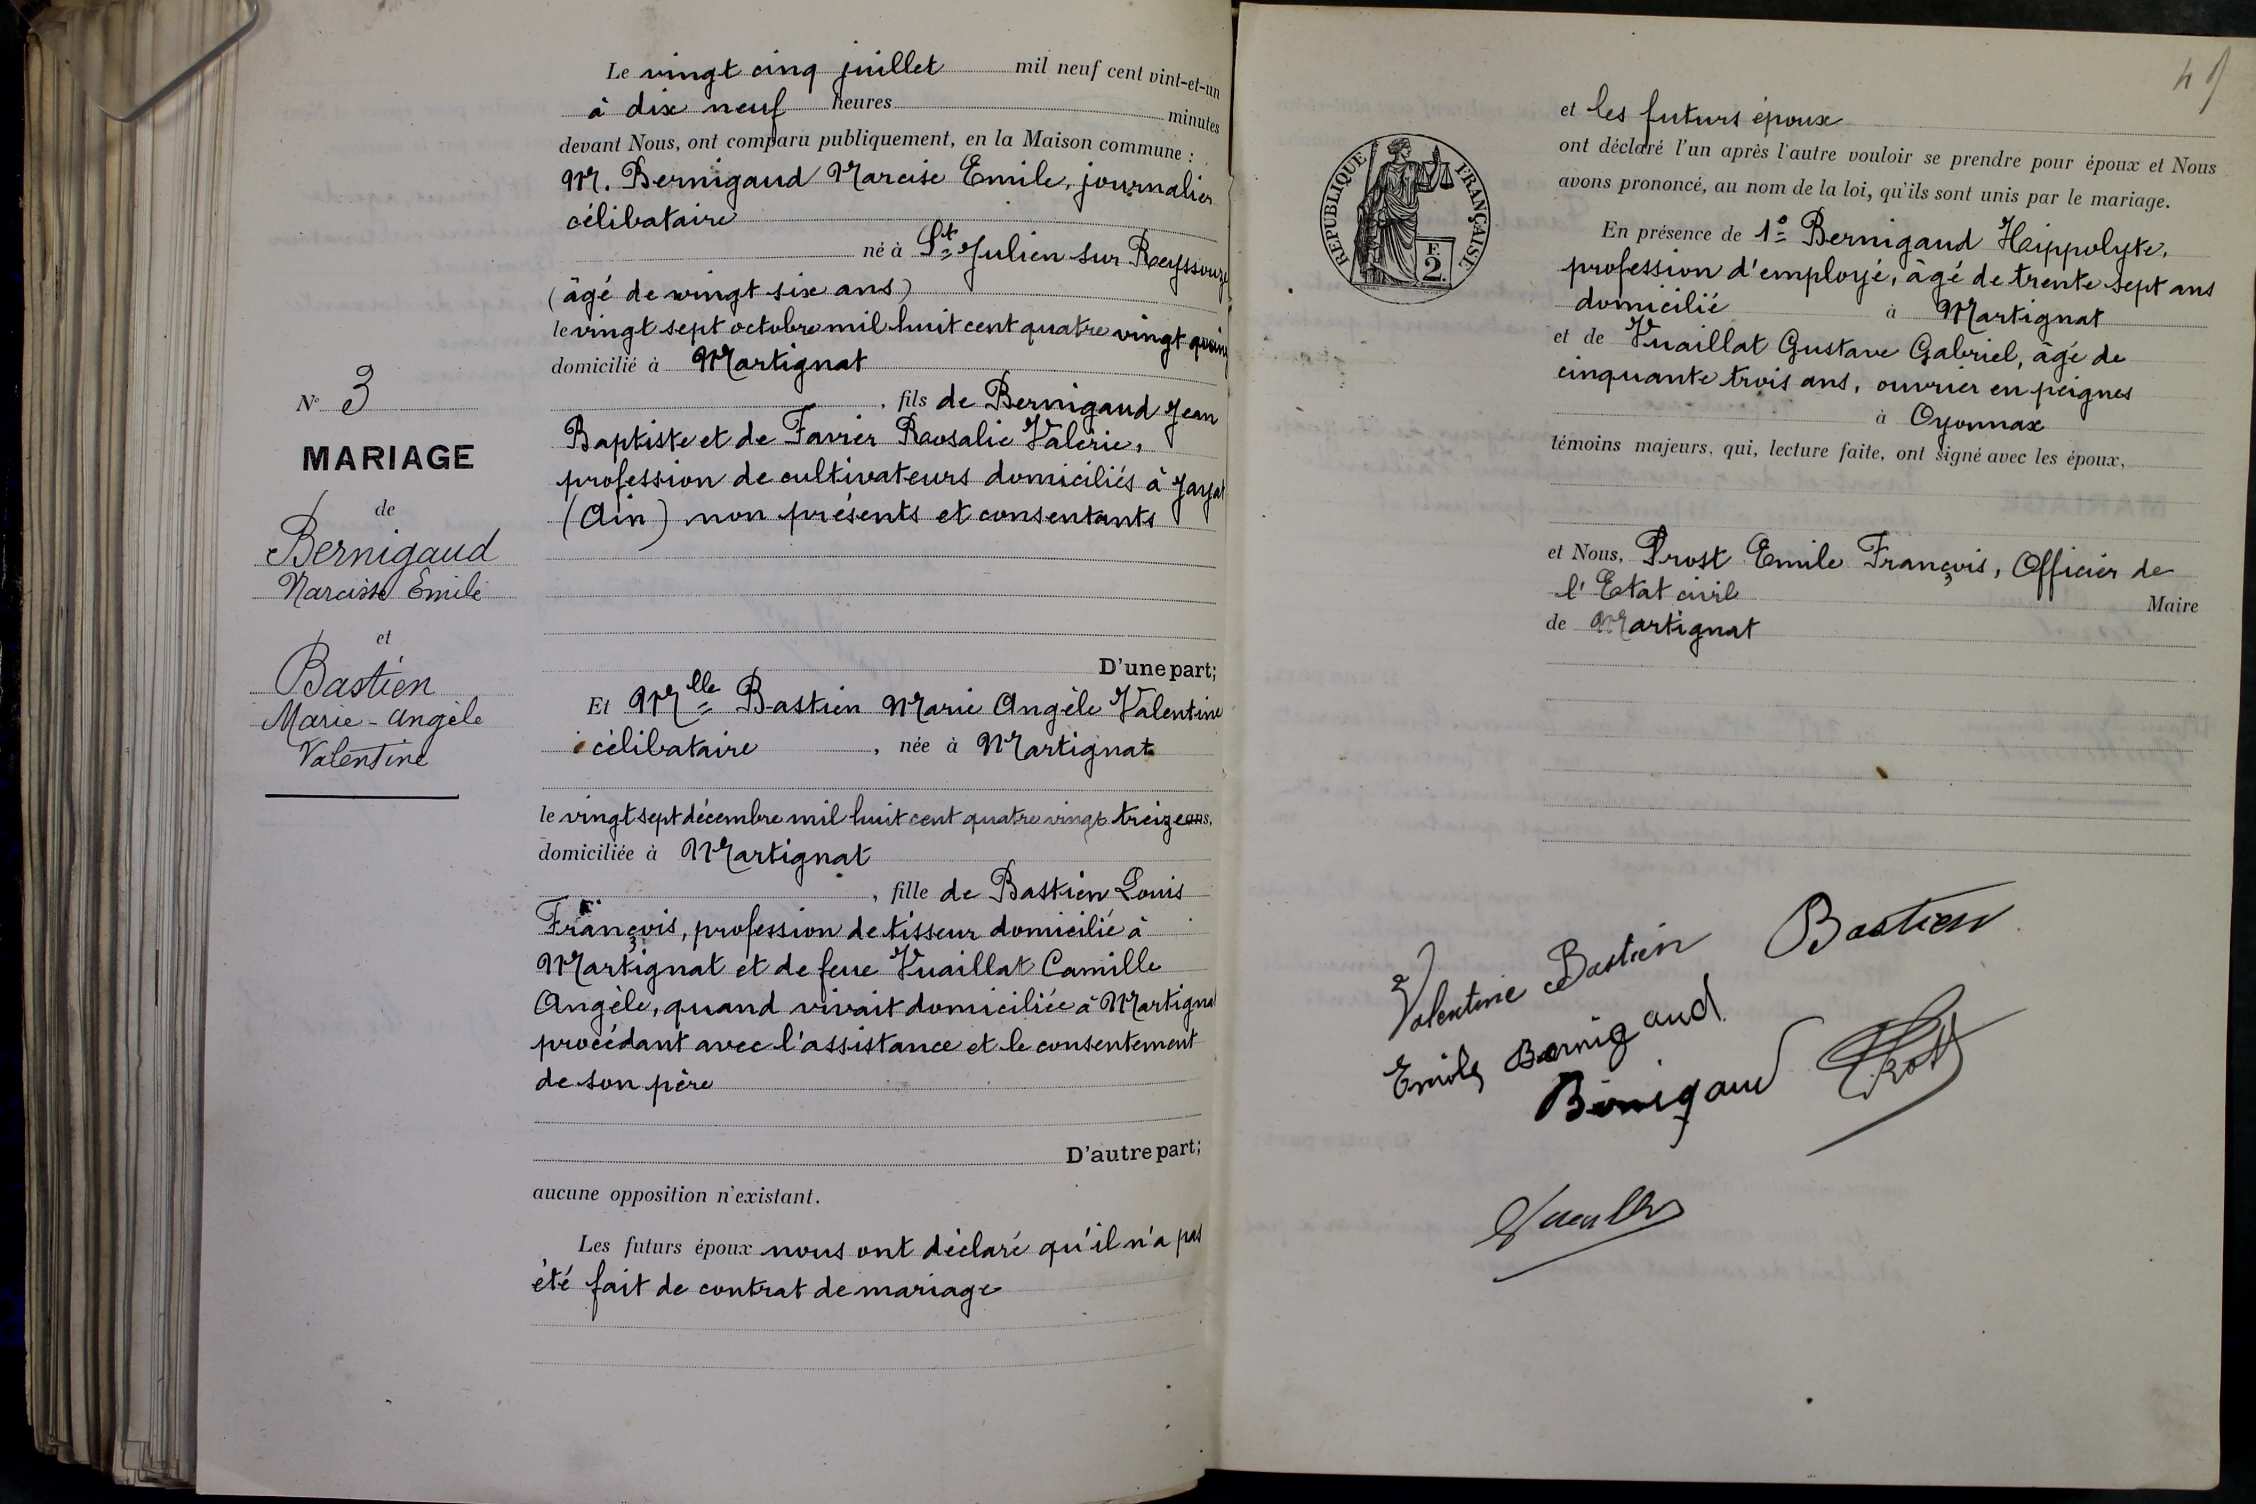 N° 3
MARIAGE
de
Bernigaud
Narcisse Emile
et
Bastien
Marie-Angèle
Valentine
Le vingt cinq juillet mil neuf cent vint-et-un
à dix neuf heures minutes
devant Nous, ont comparu publiquement, en la Maison commune :
M. Bernigaud Narcise Emile, journalier
célibataire
né à St Julien sur Reyssouze
(âgé de vingt six ans)
le vingt sept octobre mil huit cent quatre vingt quinz
domicilié à Martignat
, fils de Bernigaud Jean
Baptiste et de Favier Rosalie Valérie,
profession de cultivateurs domiciliés à Jayat
(Ain) non présents et consentants
D'une part;
Et Mlle Bastien Marie Angèle Valentine
célibataire , née à Martignat
le vingt sept décembre mil huit cent quatre vingt treize ans,
domiciliée à Martignat
, fille de Bastien Louis
François, profession de tisseur domicilié à
Martignat et de feue Vuaillat Camille
Angèle, quand vivait domiciliée à Martignat
procédant avec l'assistance et le consentement
de son père
D'autre part;
aucune opposition n'existant.
Les futurs époux nous ont déclaré qu'il n'a pas
été fait de contrat de mariage
49
REPUBLIQUE FRANÇAISE
F.
2
et les futurs époux
ont déclaré l'un après l'autre vouloir se prendre pour époux et Nous
avons prononcé, au nom de la loi, qu'ils sont unis par le mariage.
En présence de 1° Bernigaud Hippolyte,
profession d'employé, âgé de trente sept ans
domicilié à Martignat
et de Vuaillat Gustave Gabriel, âgé de
cinquante trois ans, ouvrier en peignes
à Oyonnax
témoins majeurs, qui, lecture faite, ont signé avec les époux,
et Nous, Prost Emile François, Officier de
l'Etat civil Maire
de Martignat
Valentine Bastien Bastien
Emile Bernigaud
Bernigaud Prost